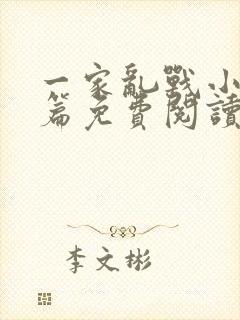 一家亂戰小
篇免費閱讀
李文彬